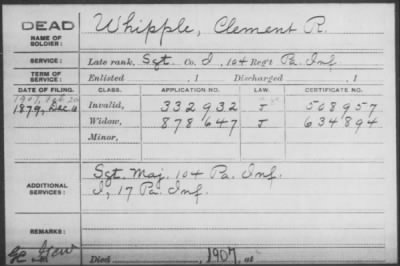 DEAD Whipple, Clement R.
NAME OF SOLDIER:
SERVICE: Late rank, Sgt. Co. I, 104 Reg't Pa. Inf.
TERM OF SERVICE: Enlisted , 1 Discharged , 1
DATE OF FILING. CLASS. APPLICATION NO. LAW. CERTIFICATE NO.
1879, Dec. Invalid, 332932 J 508957
Widow, 878647 J 634894
Minor,
ADDITIONAL SERVICES: Sgt. Maj. 104 Pa. Inf.
I, 17 Pa. Inf.
REMARKS:
Died , 1907, at